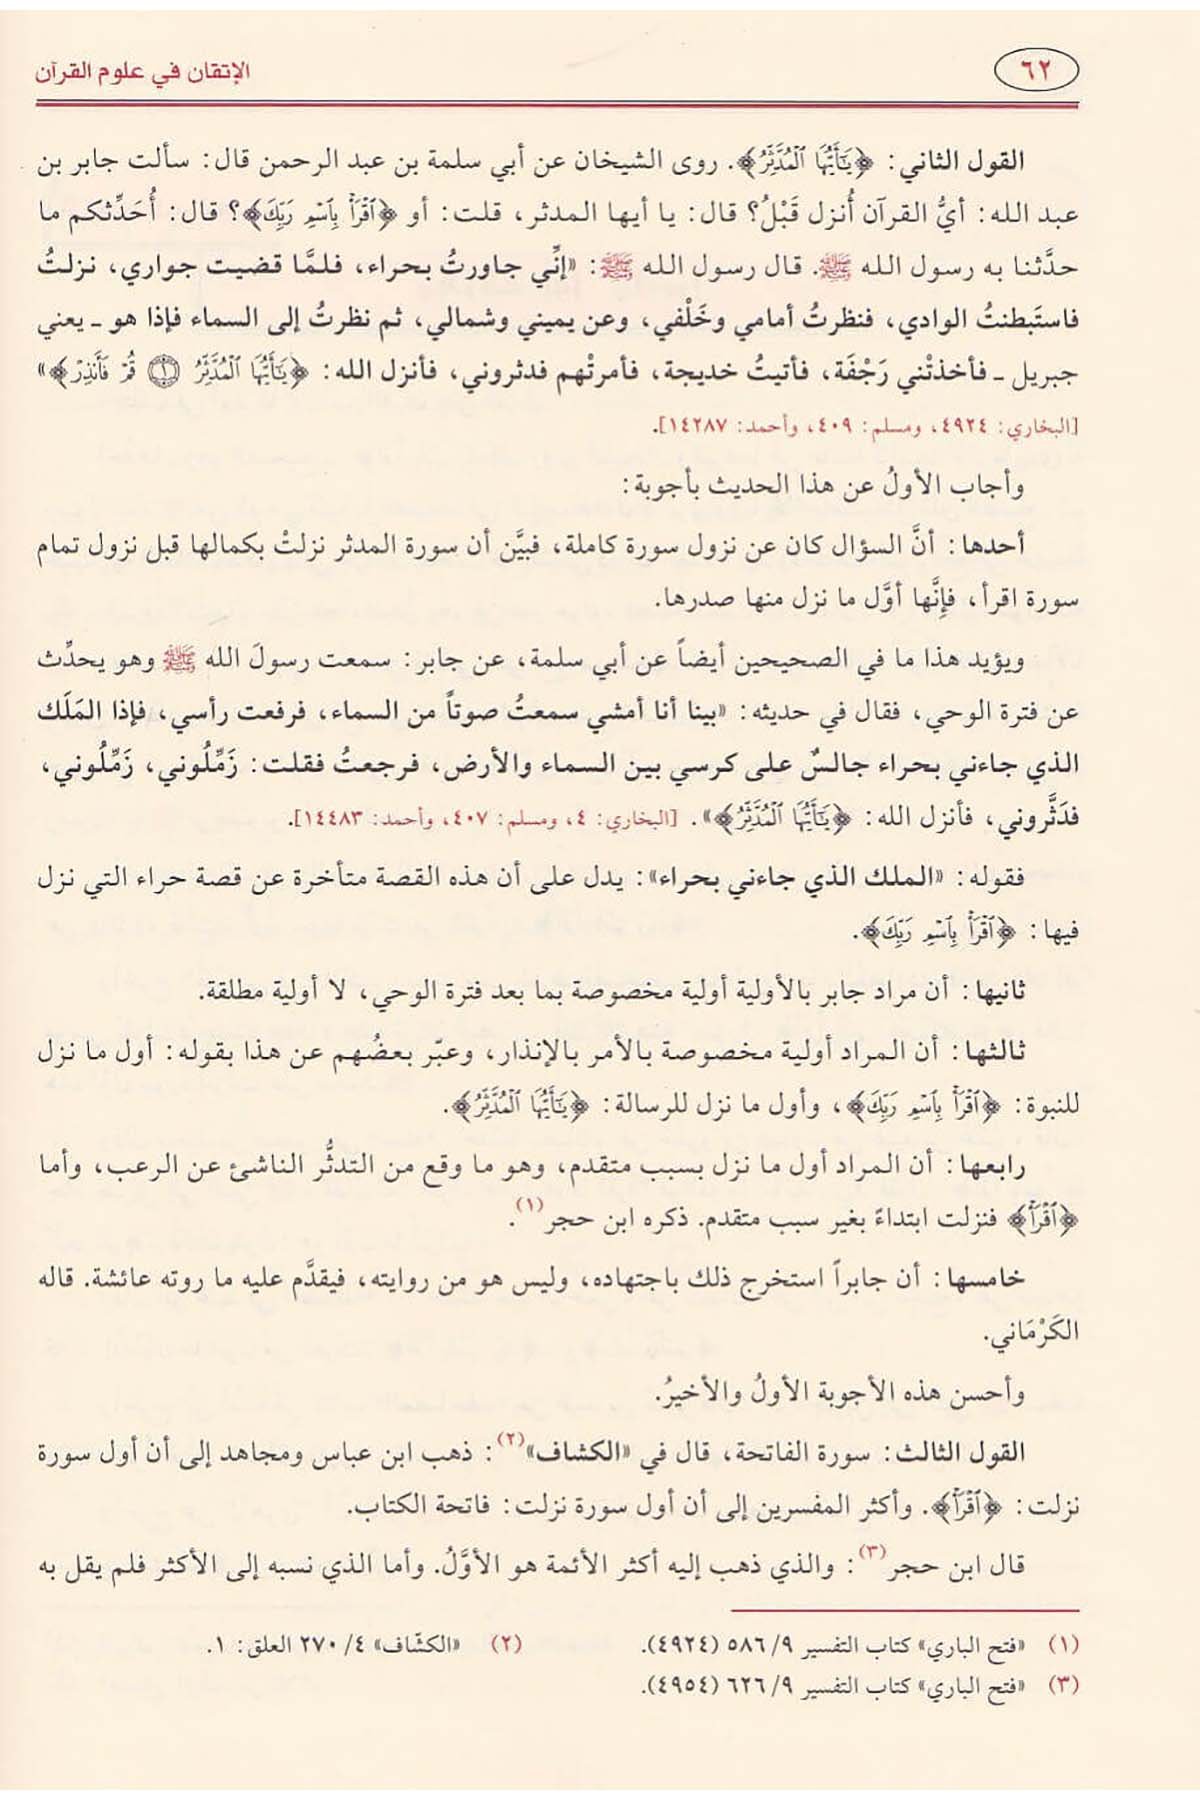 ٦٢
الإتقان في علوم القرآن
القول الثاني: ﴿يَٰٓأَيُّهَا ٱلْمُدَّثِّرُ﴾. روى الشيخان عن أبي سلمة بن عبد الرحمن قال: سألت جابر بن
عبد الله: أيُّ القرآن أُنزل قَبْلُ؟ قال: يا أيها المدثر، قلت: أو ﴿ٱقْرَأْ بِٱسْمِ رَبِّكَ﴾؟ قال: أُحَدِّثكم ما
حدَّثنا به رسول الله ﷺ. قال رسول الله ﷺ: «إنِّي جاورتُ بحراء، فلمَّا قضيت جواري، نزلتُ
فاستَبطنتُ الوادي، فنظرتُ أمامي وخَلْفي، وعن يميني وشمالي، ثم نظرتُ إلى السماء فإذا هو ـ يعني
جبريل ـ فأخذتْني رَجْفَة، فأتيتُ خديجة، فأمرتْهم فدثروني، فأنزل الله: ﴿يَٰٓأَيُّهَا ٱلْمُدَّثِّرُ ۝١ قُمْ فَأَنذِرْ﴾»
[البخاري: ٤٩٢٤، ومسلم: ٤٠٩، وأحمد: ١٤٢٨٧].
وأجاب الأولُ عن هذا الحديث بأجوبة:
أحدها: أنَّ السؤال كان عن نزول سورة كاملة، فبيَّن أن سورة المدثر نزلتْ بكمالها قبل نزول تمام
سورة اقرأ، فإِنَّها أوَّل ما نزل منها صدرها.
ويؤيد هذا ما في الصحيحين أيضاً عن أبي سلمة، عن جابر: سمعت رسولَ الله ﷺ وهو يحدِّث
عن فترة الوحي، فقال في حديثه: «بينا أنا أمشي سمعتُ صوتاً من السماء، فرفعت رأسي، فإذا المَلَك
الذي جاءني بحراء جالسٌ على كرسي بين السماء والأرض، فرجعتُ فقلت: زَمِّلُوني، زَمِّلُوني،
فدَثَّروني، فأنزل الله: ﴿يَٰٓأَيُّهَا ٱلْمُدَّثِّرُ﴾». [البخاري: ٤، ومسلم: ٤٠٧، وأحمد: ١٤٤٨٣].
فقوله: «الملك الذي جاءني بحراء»: يدل على أن هذه القصة متأخرة عن قصة حراء التي نزل
فيها: ﴿ٱقْرَأْ بِٱسْمِ رَبِّكَ﴾.
ثانيها: أن مراد جابر بالأولية أولية مخصوصة بما بعد فترة الوحي، لا أولية مطلقة.
ثالثها: أن المراد أولية مخصوصة بالأمر بالإنذار، وعبّر بعضُهم عن هذا بقوله: أول ما نزل
للنبوة: ﴿ٱقْرَأْ بِٱسْمِ رَبِّكَ﴾، وأول ما نزل للرسالة: ﴿يَٰٓأَيُّهَا ٱلْمُدَّثِّرُ﴾.
رابعها: أن المراد أول ما نزل بسبب متقدم، وهو ما وقع من التدثُّر الناشئ عن الرعب، وأما
﴿ٱقْرَأْ﴾ فنزلت ابتداءً بغير سبب متقدم. ذكره ابن حجر(١).
خامسها: أن جابراً استخرج ذلك باجتهاده، وليس هو من روايته، فيقدَّم عليه ما روته عائشة. قاله
الكَرْمَاني.
وأحسن هذه الأجوبة الأولُ والأخيرُ.
القول الثالث: سورة الفاتحة، قال في «الكشاف»(٢): ذهب ابن عباس ومجاهد إلى أن أول سورة
نزلت: ﴿ٱقْرَأْ﴾. وأكثر المفسرين إلى أن أول سورة نزلت: فاتحة الكتاب.
قال ابن حجر(٣): والذي ذهب إليه أكثر الأئمة هو الأوَّلُ. وأما الذي نسبه إلى الأكثر فلم يقل به
(١) «فتح الباري» كتاب التفسير ٩/ ٥٨٦ (٤٩٢٤).
(٢) «الكشّاف» ٤/ ٢٧٠ العلق: ١.
(٣) «فتح الباري» كتاب التفسير ٩/ ٦٢٦ (٤٩٥٤).